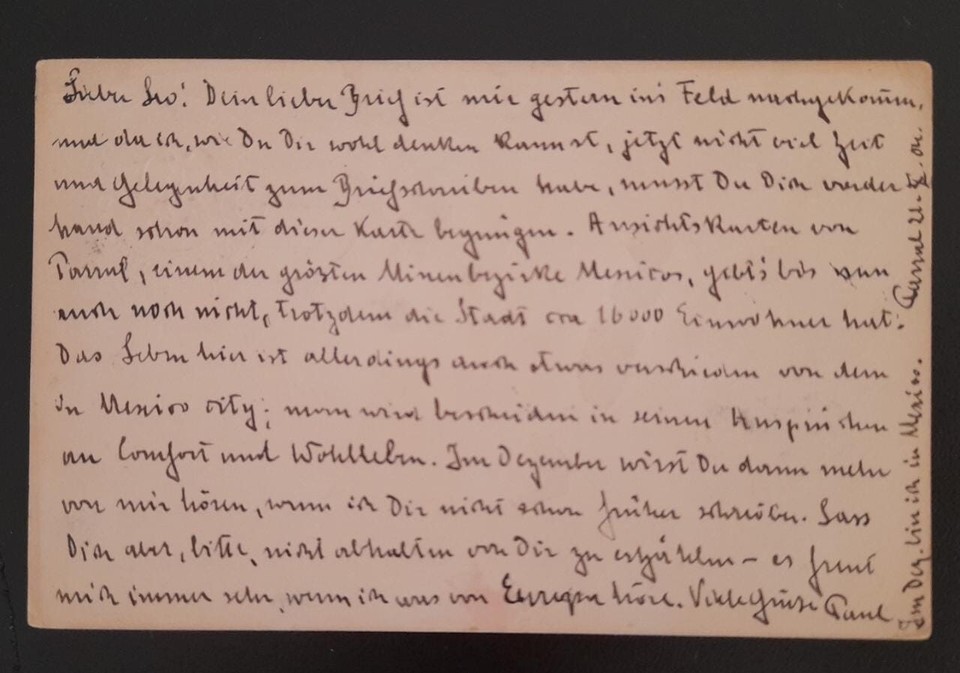 Liebe Leo! Dein lieber Brief ist mir gestern ins Feld nachgekomm.
und da ich, wie Du Dir wohl denken kannst, jetzt nicht viel Zeit
und Gelegenheit zum Briefschreiben habe, musst Du Dich vorder
hand schon mit dieser Karte begnügen. Ansichtskarten von
Parral, einem der größten Minenbezirke Mexicos, gebt's bis nun
auch noch nicht, trotzdem die Stadt cca 16000 Einwohner hat.
Das Leben hier ist allerdings auch etwas verschieden von dem
in Mexico City; man wird bescheiden in seinen Ansprüchen
an Comfort und Wohlleben. Im Dezember wirst Du dann mehr
von mir hören, wenn ich Dir nicht schon früher schreibe. Lass
Dich aber, bitte, nicht abhalten von Dir zu erzählen – es freut
mich immer sehr, wenn ich was von Europa höre. Viele Grüsse Paul
Im Dez. bin ich in Mexico. Parral 22. X. 04.